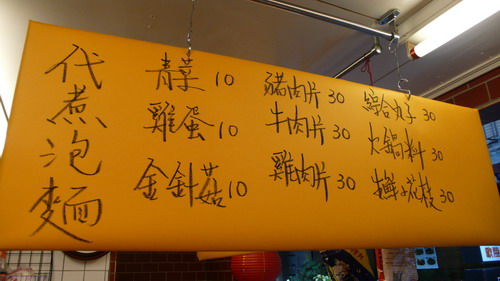 代煮泡麵
青菜10
雞蛋10
金針菇10
豬肉片30
牛肉片30
雞肉片30
綜合丸子30
火鍋料30
花枝30